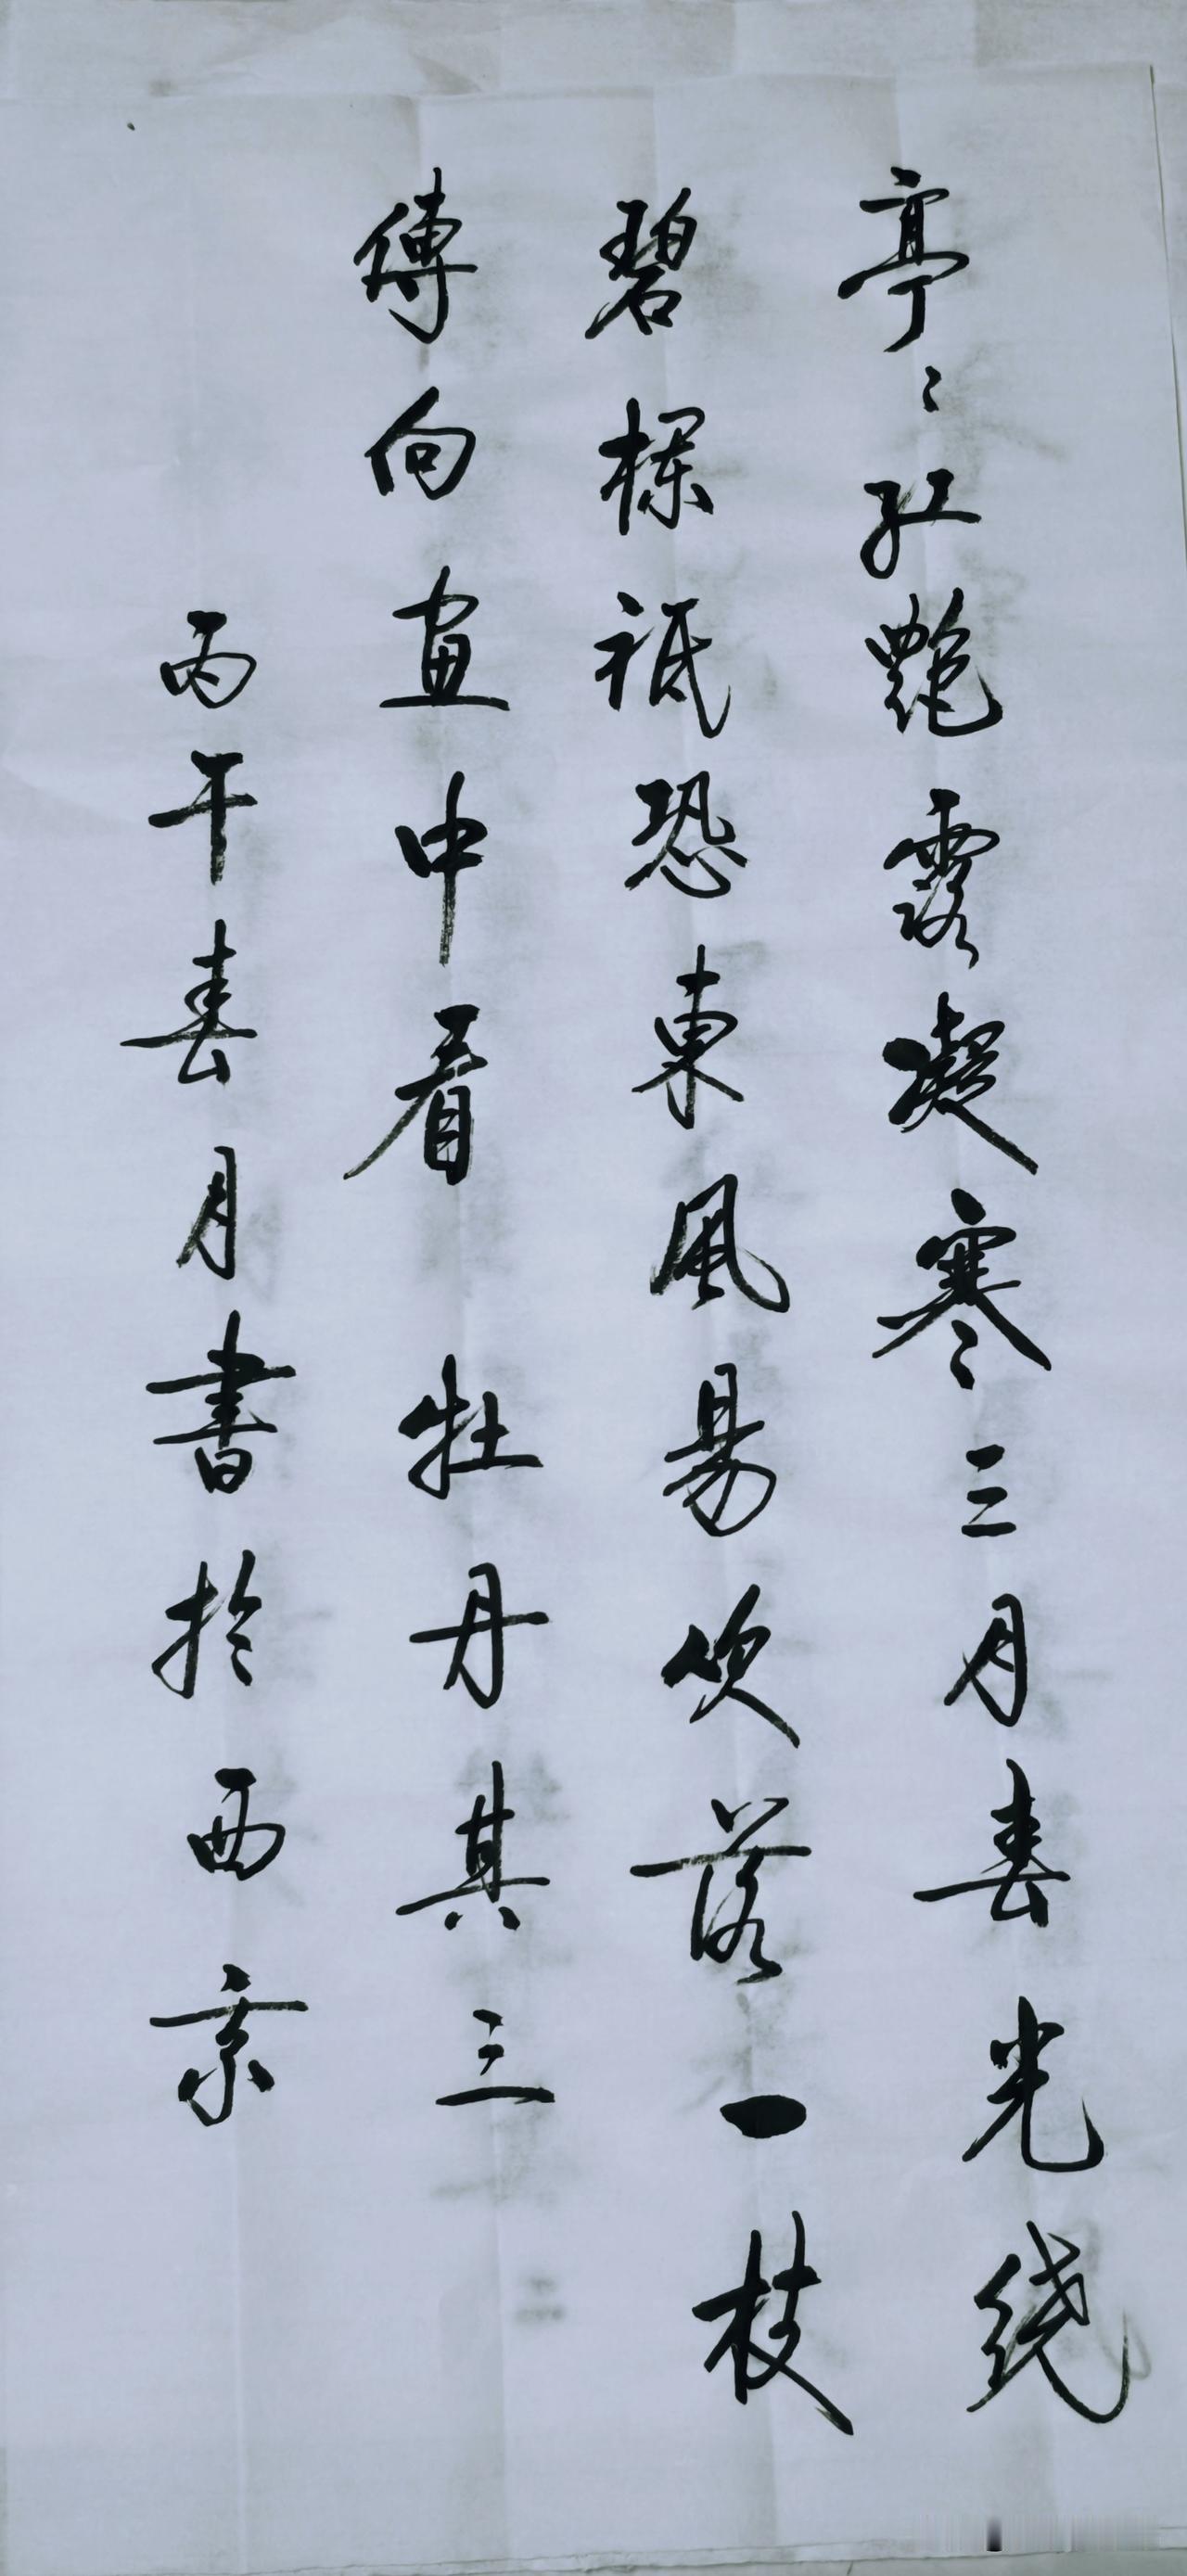 亭〻红艳露凝寒三月春光绕
碧栏祗恐東風易吹落一枝
傳向画中看 牡丹其三
丙午春月書於西京